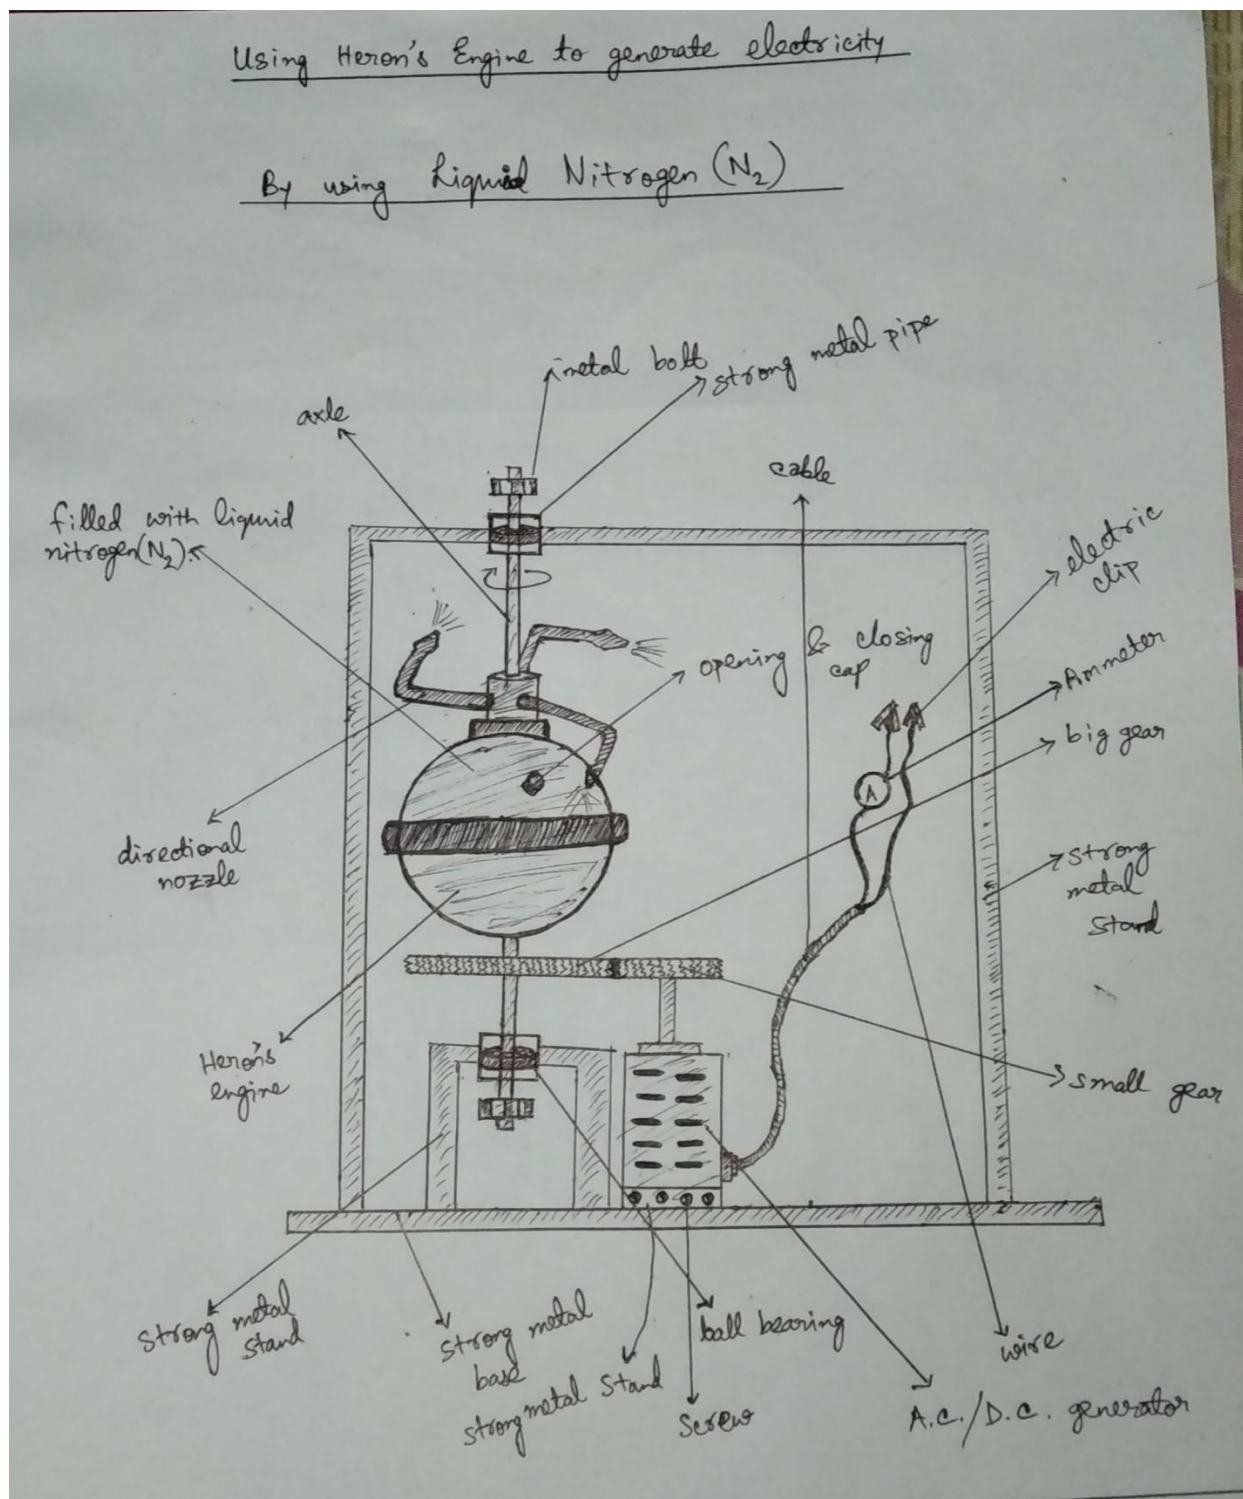 Using Heron's Engine to generate electricity
By using Liquid Nitrogen (N2)
metal bolt
strong metal pipe
axle
cable
filled with liquid
nitrogen(N2).
electric
clip
opening & closing
cap
Ammeter
big gear
A
directional
nozzle
strong
metal
stand
Heron's
engine
small gear
strong metal
stand
strong metal
base
strong metal stand
ball bearing
screw
wire
A.C./D.C. generator